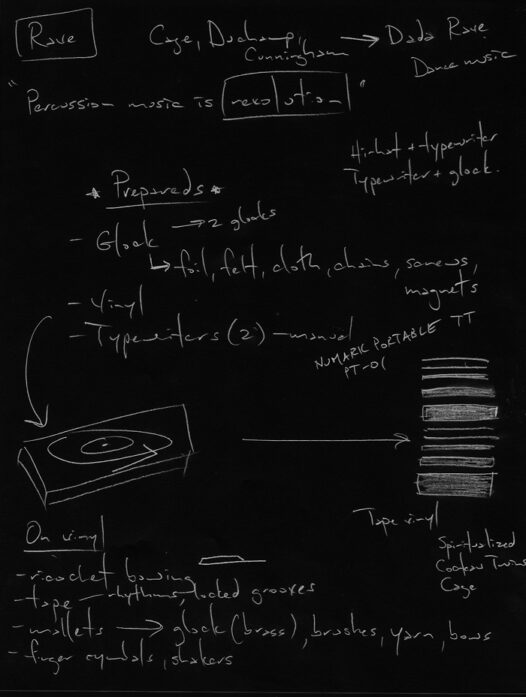 Rave
Cage, Duchamp, Cunningham → Dada Rave
Dance music
"Percussion music is revolution"
Hi-hat + typewriter
Typewriter + glock.
* Prepareds *
- Glock → 2 glocks
↳ foil, felt, cloth, chains, screws,
magnets
- Vinyl
- Typewriters (2) - manual
NUMARK PORTABLE TT
PT-01
Tape vinyl
Spiritualized
Cocteau Twins
Cage
On vinyl
- ricochet bowing
- tape - rhythms, locked grooves
- mallets → glock (brass), brushes, yarn, bows
- finger cymbals, shakers